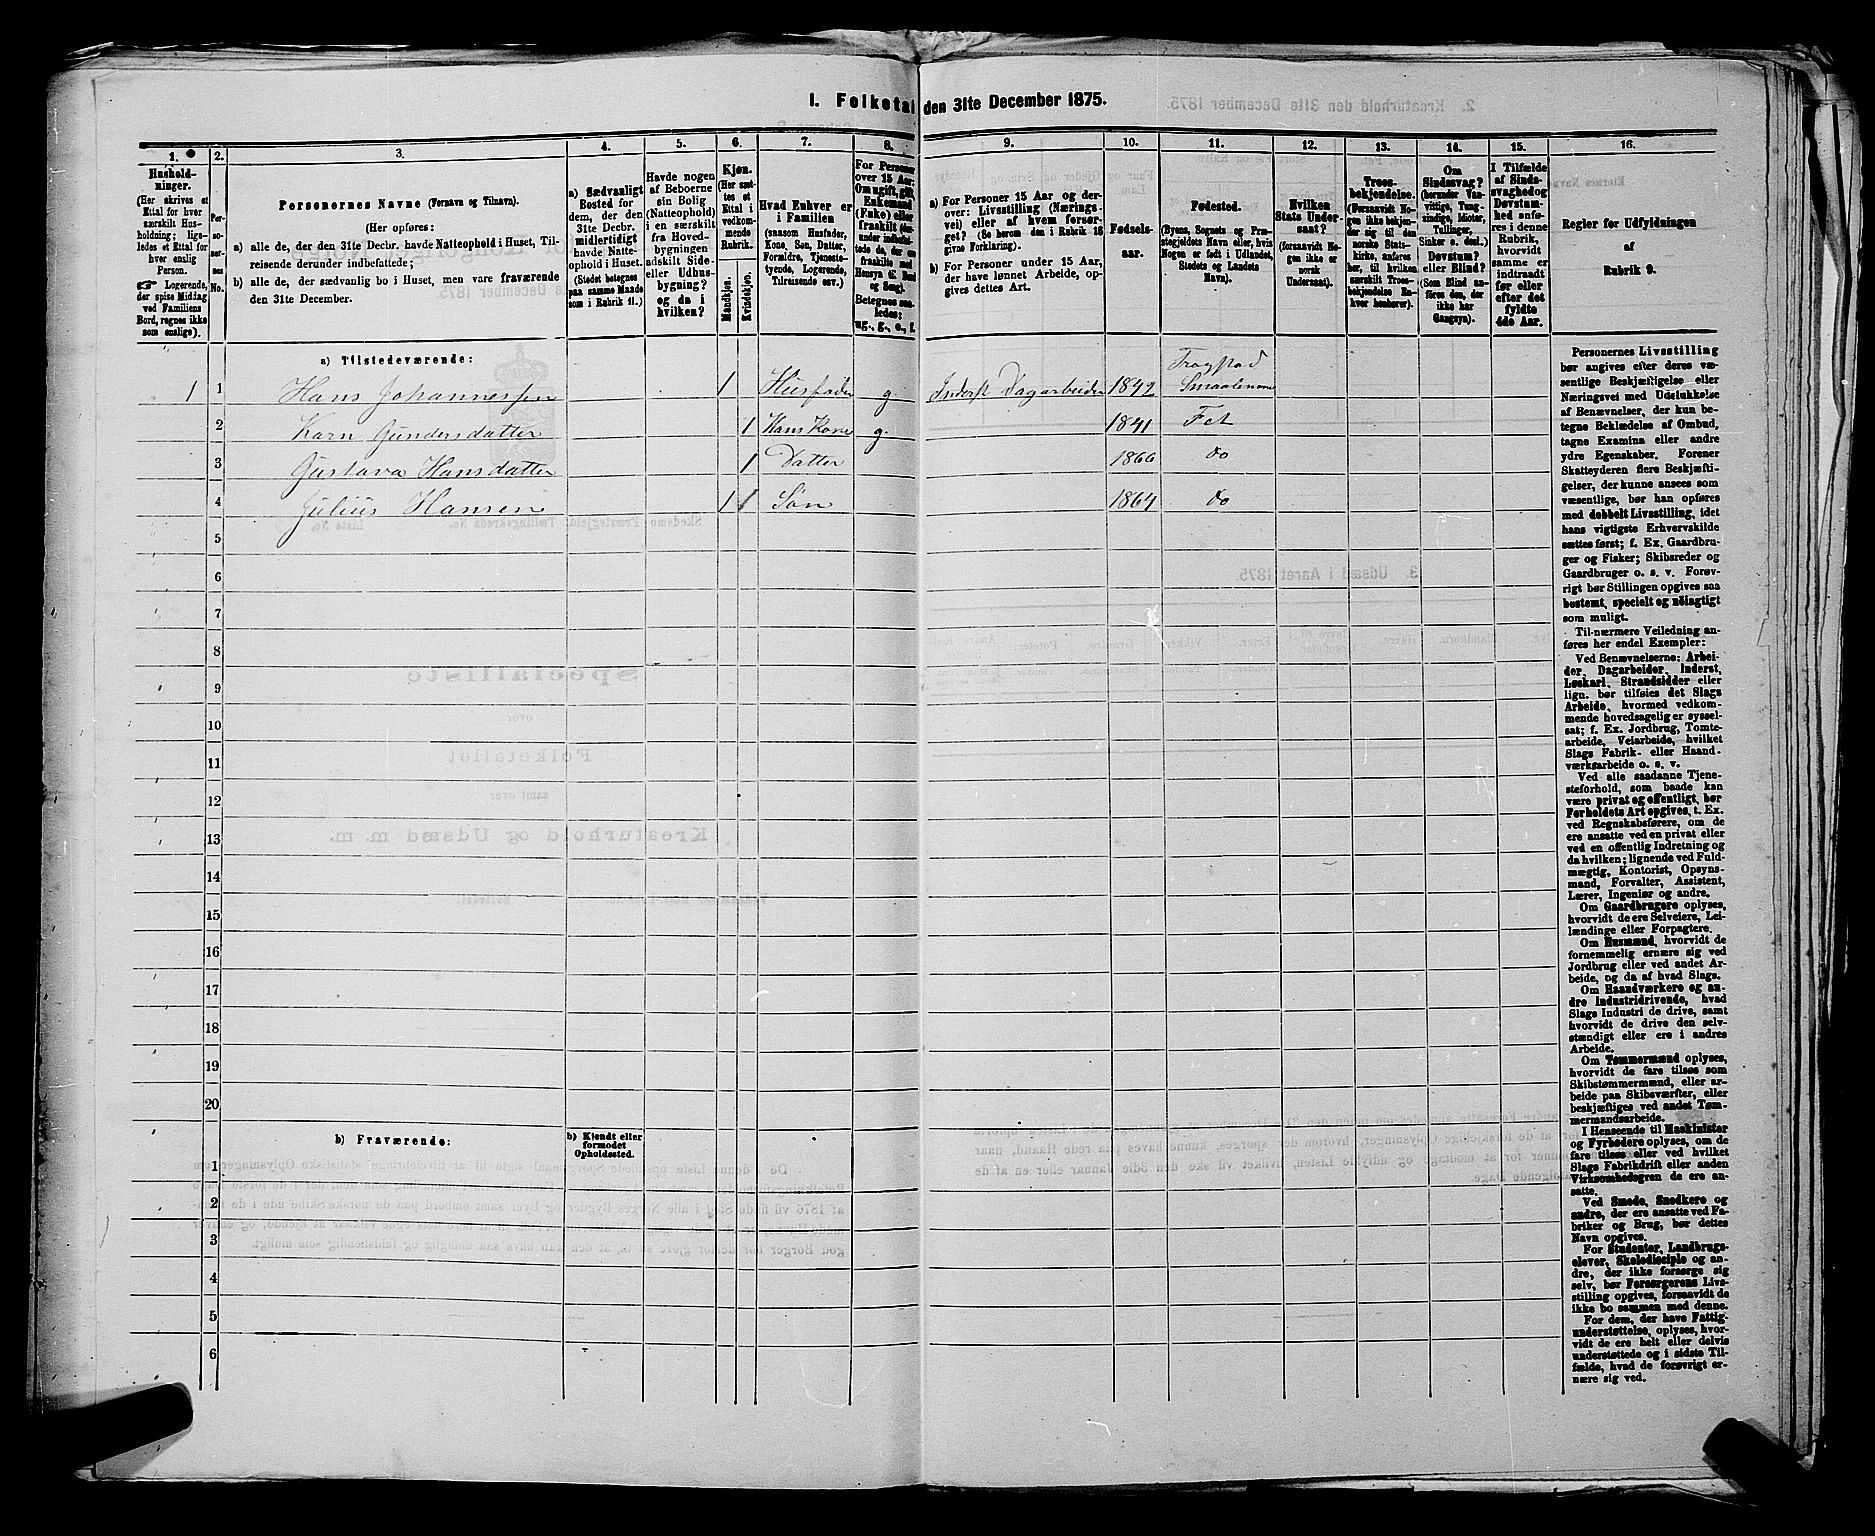 1. Folketal den 31te December 1875.
1. 2. 3. 4. 5. 6. 7. 8. 9. 10. 11. 12. 13. 14. 15. 16.
Hushold-
ninger.
(Her skrives et
Ettal for hver
særskilt Hus-
holdning; lige-
ledes et Ettal for
hver enslig
Person.
☞ Logerende,
der spise Middag
ved Familiens
Bord, regnes ikke
som enslige).
Per-
so-
ner-
nes
No.
Personernes Navne (Fornavn og Tilnavn).
(Her opføres:
a) alle de, der den 31te Decbr. havde Natteophold i Huset, Til-
reisende derunder indbefattede;
b) alle de, der sædvanlig bo i Huset, men vare fraværende
den 31te December.
a) Sædvanligt
Bosted for
dem, der den
31te Decbr.
midlertidigt
havde Natte-
ophold i Huset.
(Stedet betegnes
paa samme Maade
som i Rubrik 11.)
Havde nogen
af Beboerne
sin Bolig
(Natteophold)
i en særskilt
fra Hoved-
bygningen
adskilt Side-
eller Udhus-
bygning?
og da i
hvilken?
Kjøn.
(Her sæt-
tes et
Ettal i
vedkom-
mende
Rubrik.
Mandkjøn.
Kvindekjøn.
Hvad Enhver er
i Familien
(saasom Husfader,
Kone, Søn, Datter,
Forældre, Tjeneste-
tyende, Logerende,
Tilreisende osv.)
For Personer
over 15 Aar:
Om ugift, gift,
Enkemand
(Enke) eller
fraskilt
Betegnes saa-
ledes:
ug., g., e., f.
a) For Personer 15 Aar og der-
over: Livsstilling (Nærings-
vei) eller af hvem forsør-
get? (Se herom den i Rubrik 16
givne Forklaring).
b) For Personer under 15 Aar,
der have lønnet Arbeide, op-
gives dettes Art.
Fødsels-
aar.
Fødested.
(Byens, Sognets og Præ-
stegjeldets Navn eller, hvis
Nogen er født i Udlandet,
Stedets og Landets
Navn).
Hvilken
Stats Under-
saat?
(forsaavidt No-
gen ikke er
norsk
Undersaat).
Troes-
bekjendelse.
(Forsaavidt No-
gen ikke bekjen-
der sig til den
norske Stats-
kirke, anføres
her, til hvilken
særskilt Troes-
bekjendelse En-
hver henhører).
Om
Sindssvag?
(herunder Van-
vittige, Tung-
sindige, Idioter,
Tullinger,
Sinker o. desl.)
Døvstum?
eller Blind?
(Som Blind an-
føres den, der
ikke har
Gangsyn).
I Tilfælde
af Sinds-
svaghed og
Døvstum-
hed anfø-
res i denne
Rubrik,
hvorvidt
samme er
indtraadt
før eller
efter det
fyldte
4de Aar.
Regler for Udfyldningen
af
Rubrik 9.
a) Tilstedeværende:
1 1 Hans Johannessen 1 Husfader g. Inderst Dagarbeider 1842 Trøgstad Smaalenene
2 Karn Gundersdatter 1 Hans Kone g. 1841 Fet
3 Gustava Hansdatter 1 Datter 1866 do
4 Julius Hansen 1 1 Søn 1864 do
5
6
7
8
9
10
11
12
13
14
15
16
17
18
19
20
b) Fraværende:
b) Kjendt eller
formodet
Opholdssted.
1
2
3
4
5
6
Personernes Livsstilling
bør angives efter deres væ-
sentlige Beskjæftigelse eller
Næringsvei med Udelukkelse
af Benævnelser, der kun be-
tegne Beklædelse af Ombud,
tagne Examina eller andre
ydre Egenskaber. Forener
Skatteyderen flere Beskjæfti-
gelser, der kunne ansees som
væsentlige, bør han opføres
med dobbelt Livsstilling, idet
hans vigtigste Erhvervskilde
sættes først; f. Ex. Gaardbru-
ger og Fisker; Skibsreder og
Gaardbruger o. s. v. Forøv-
rigt bør Stillingen opgives saa
bestemt, specielt og nøiagtigt
som muligt.
Til nærmere Veiledning an-
føres her endel Exempler:
Ved Benævnelserne: Arbei-
der, Dagarbeider, Inderst,
Løskarl, Strandsidder eller
lign. bør tilføies det Slags
Arbeide, hvormed vedkom-
mende hovedsagelig er syssel-
sat; f. Ex. Jordbrug, Tomte-
arbeide, Veiarbeide, hvilket
Slags Fabrik- eller Haand-
værksarbeide o. s. v.
Ved alle saadanne Tjene-
steforhold, som baade kan
være privat og offentligt, bør
Forholdets Art opgives, t. Ex.
ved Regnskabsførere, om de
ere ansatte ved en privat eller
ved en offentlig Indretning og
da hvilken; lignende ved Fuld-
mægtig, Kontorist, Opsyns-
mand, Forvalter, Assistent,
Lærer, Ingeniør og andre.
Om Gaardbrugere oplyses,
hvorvidt de ere Selveiere, Lei-
lændinge eller Forpagtere.
Om Husmænd, hvorvidt de
fornemmelig ernære sig ved
Jordbrug eller ved andet Ar-
beide, og da af hvad Slags.
Om Haandværkere og an-
dre Industridrivende, hvad
Slags Industri de drive, samt
hvorvidt de drive den selv-
stændigt eller ere i andres
Arbeide.
Om Tømmermænd oplyses,
hvorvidt de fare tilsøs som
Skibstømmermænd, eller ar-
beide paa Skibsværfter, eller
beskjæftiges ved andet Tøm-
mermandsarbeide.
I Henseende til Maskinister
og Fyrbødere oplyses, om de
fare tilsøs eller ved hvilket
Slags Fabrikdrift eller anden
Virksomhedsgren de ere an-
satte.
Ved Smede, Snedkere og
andre, der ere ansatte ved Fa-
briker og Brug, bør dettes
Navn opgives.
For Studenter, Landbrugs-
elever, Skoledisciple og an-
dre, der ikke forsørge sig
selv, bør Forsørgerens Livs-
stilling opgives, forsaavidt de
ikke bo sammen med denne.
For dem, der have Fattig-
understøttelse, oplyses, hvor-
vidt de ere helt eller delvis
understøttede og i sidste Til-
fælde, hvad de forøvrigt er-
nære sig ved.